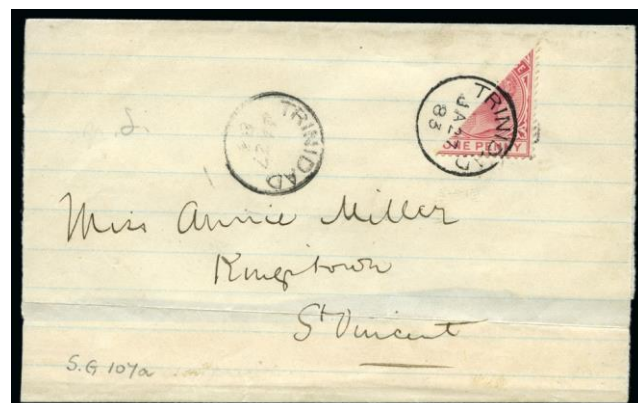 TRINIDAD
JA 27
83
TRINIDAD
JA 27
83
NE PENNY
Miss Annie Miller
Kingstown
St Vincent
S.G 107a